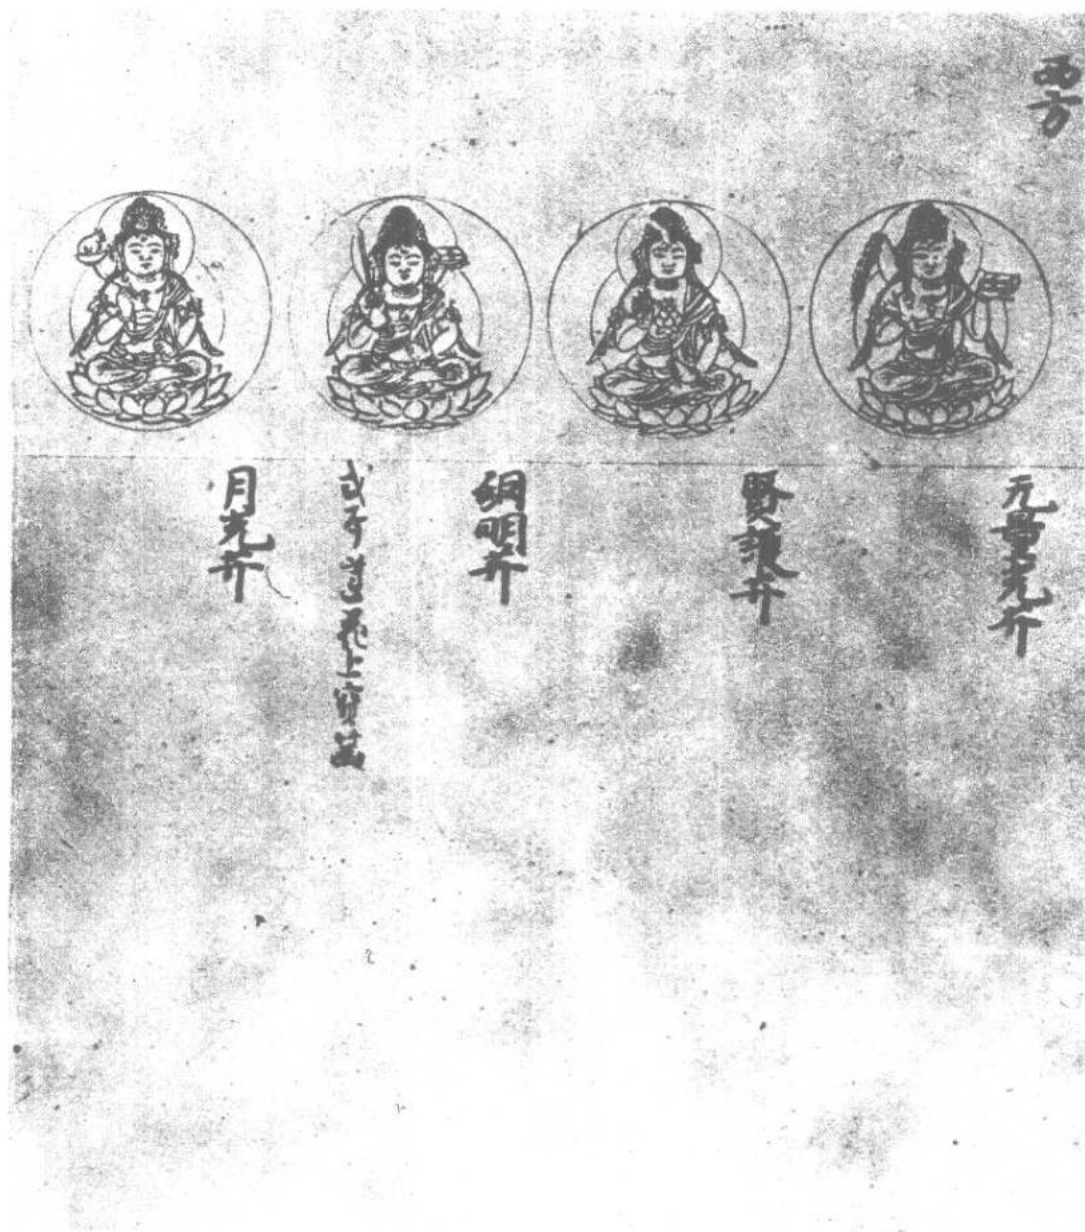 西方
无量光𦬇
賢護𦬇
網明𦬇
或 蓮花上寶
月光𦬇